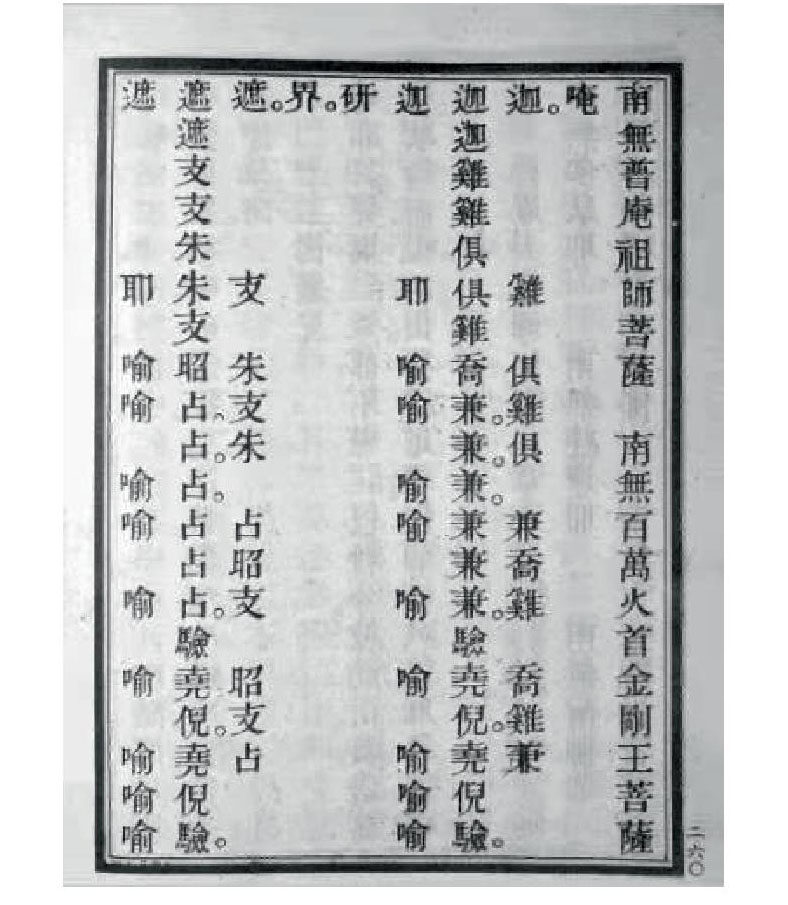 南無普庵祖師菩薩 南無百萬火首金剛王菩薩
唵
迦。 雞 俱雞俱 兼喬雞 喬雞兼
迦迦雞雞俱俱雞喬兼。兼。兼。兼兼兼。驗堯倪。堯倪驗。
迦 耶 喻喻 喻喻 喻 喻 喻喻喻
研。
界。
遮。 支 朱支朱 占昭支 昭支占
遮遮支支朱朱支昭占、占。占。占占占。驗堯倪。堯倪驗。
遮 耶 喻喻 喻喻 喻 喻 喻喻喻
二六〇